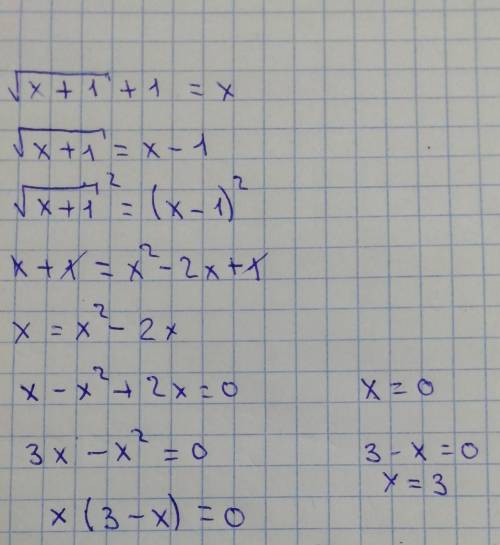 √(x + 1) + 1 = x
√(x + 1) = x - 1
√(x + 1)² = (x - 1)²
x + 1 = x² - 2x + 1
x = x² - 2x
x - x² + 2x = 0
3x - x² = 0
x (3 - x) = 0
x = 0
3 - x = 0
x = 3